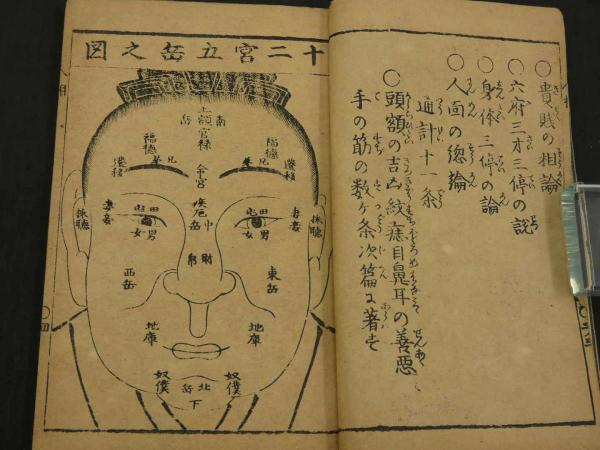 〇貴賤の相論
〇六府三才三停の説
〇身体三停の論
〇人面の總論
通計十一条
〇頭額の吉凶紋痣目鼻耳の善悪
手の筋の数ヶ条次篇に著す
十二宮五岳之図
南岳
上額官禄
福徳
福徳
兄弟
兄弟
遷移
遷移
命宮
妻妾
妻妾
疾厄
中岳
田宅
男女
男女
採聴
採聴
財帛
西岳
東岳
地庫
地庫
奴僕
奴僕
北岳
下